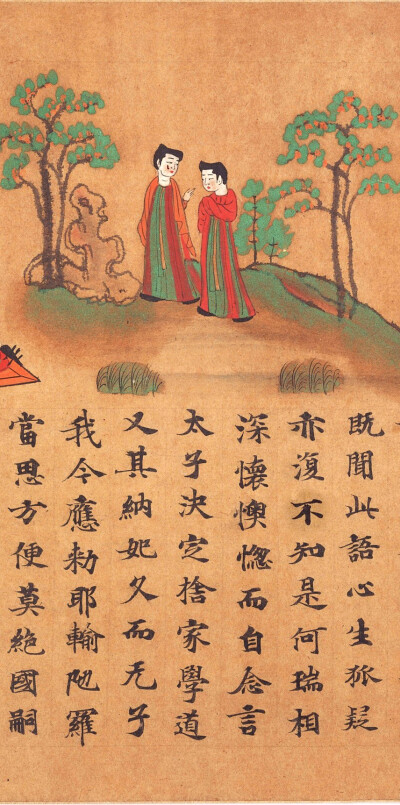 既聞此語心生狐疑
亦復不知是何瑞相
深懷懊惱而自念言
太子決定捨家學道
又其納妃久而无子
我今應勅耶輸陁羅
當思方便莫絕國嗣